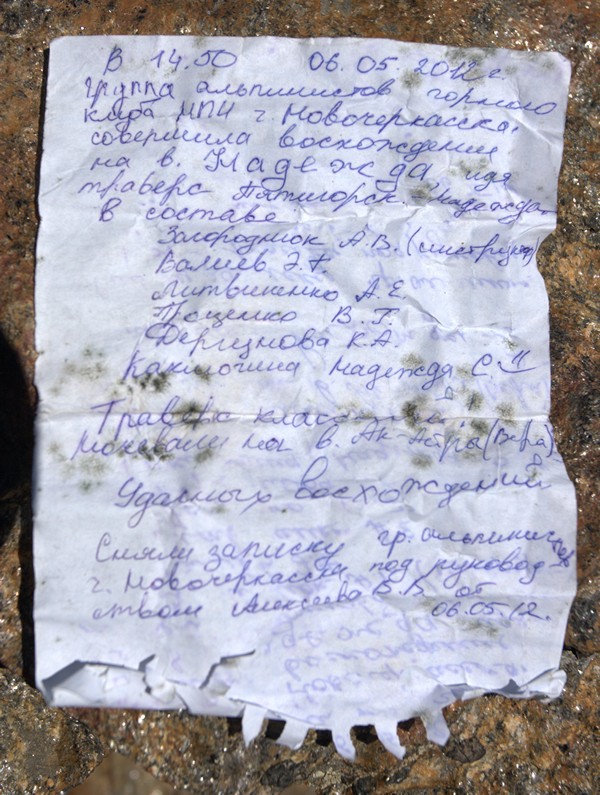 В 14.50 06.05.2012 г.
группа альпинистов горного
клуба НПИ г. Новочеркасска,
совершила восхождение
на в. Надежда идя
траверс Пятигорск. Надежда.
В составе
Загороднюк А.В. (инструктор)
Валиев Э.Г.
Литвиненко А.Е.
Проценко В.Г.
Дергунова К.А.
Надежда С.
Траверс
в. Ак-Астра (Вера)
Удачных восхождений
Сняли записку гр. альпинистов
г. Новочеркасска под руковод-
ством Алексеева В.В. от
06.05.12.